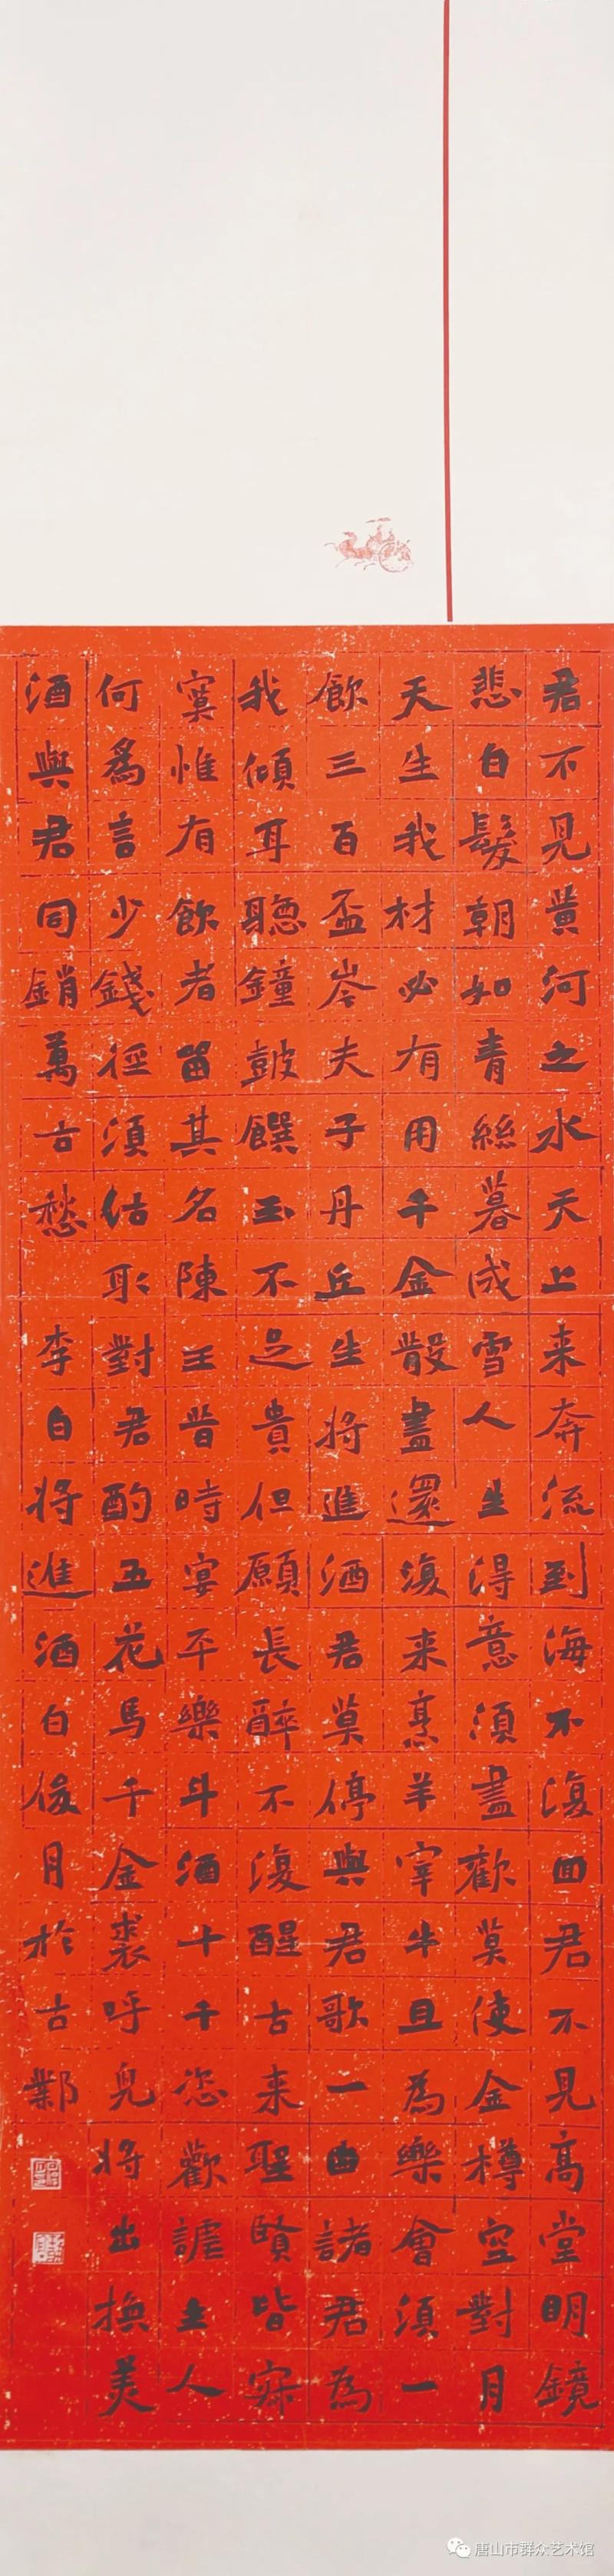 君不見黄河之水天上来奔流到海不復回君不見高堂明鏡
悲白髮朝如青絲暮成雪人生得意須盡歡莫使金樽空對月
天生我材必有用千金散盡還復来烹羊宰牛且為樂會須一
飲三百盃岑夫子丹丘生将進酒君莫停與君歌一曲諸君為
我傾耳聽鐘皷饌玉不足貴但願長醉不復醒古来聖賢皆寂
寞惟有飲者留其名陳王昔時宴平樂斗酒十千恣歡謔主人
何爲言少錢徑須沽取對君酌五花馬千金裘呼兒将出換美
酒與君同銷萬古愁 李白将進酒白俊月於古鄴
唐山市群众艺术馆